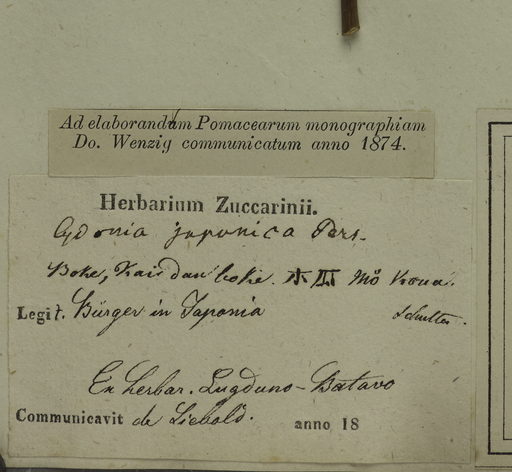 Ad elaborandum Pomacearum monographiam
Do. Wenzig communicatum anno 1874.
Herbarium Zuccarinii.
Cydonia japonica Pers.
Boke,
Legit. Bürger in Japonia
Ex herbar. Lugduno-Batavo
Communicavit de Siebold. anno 18